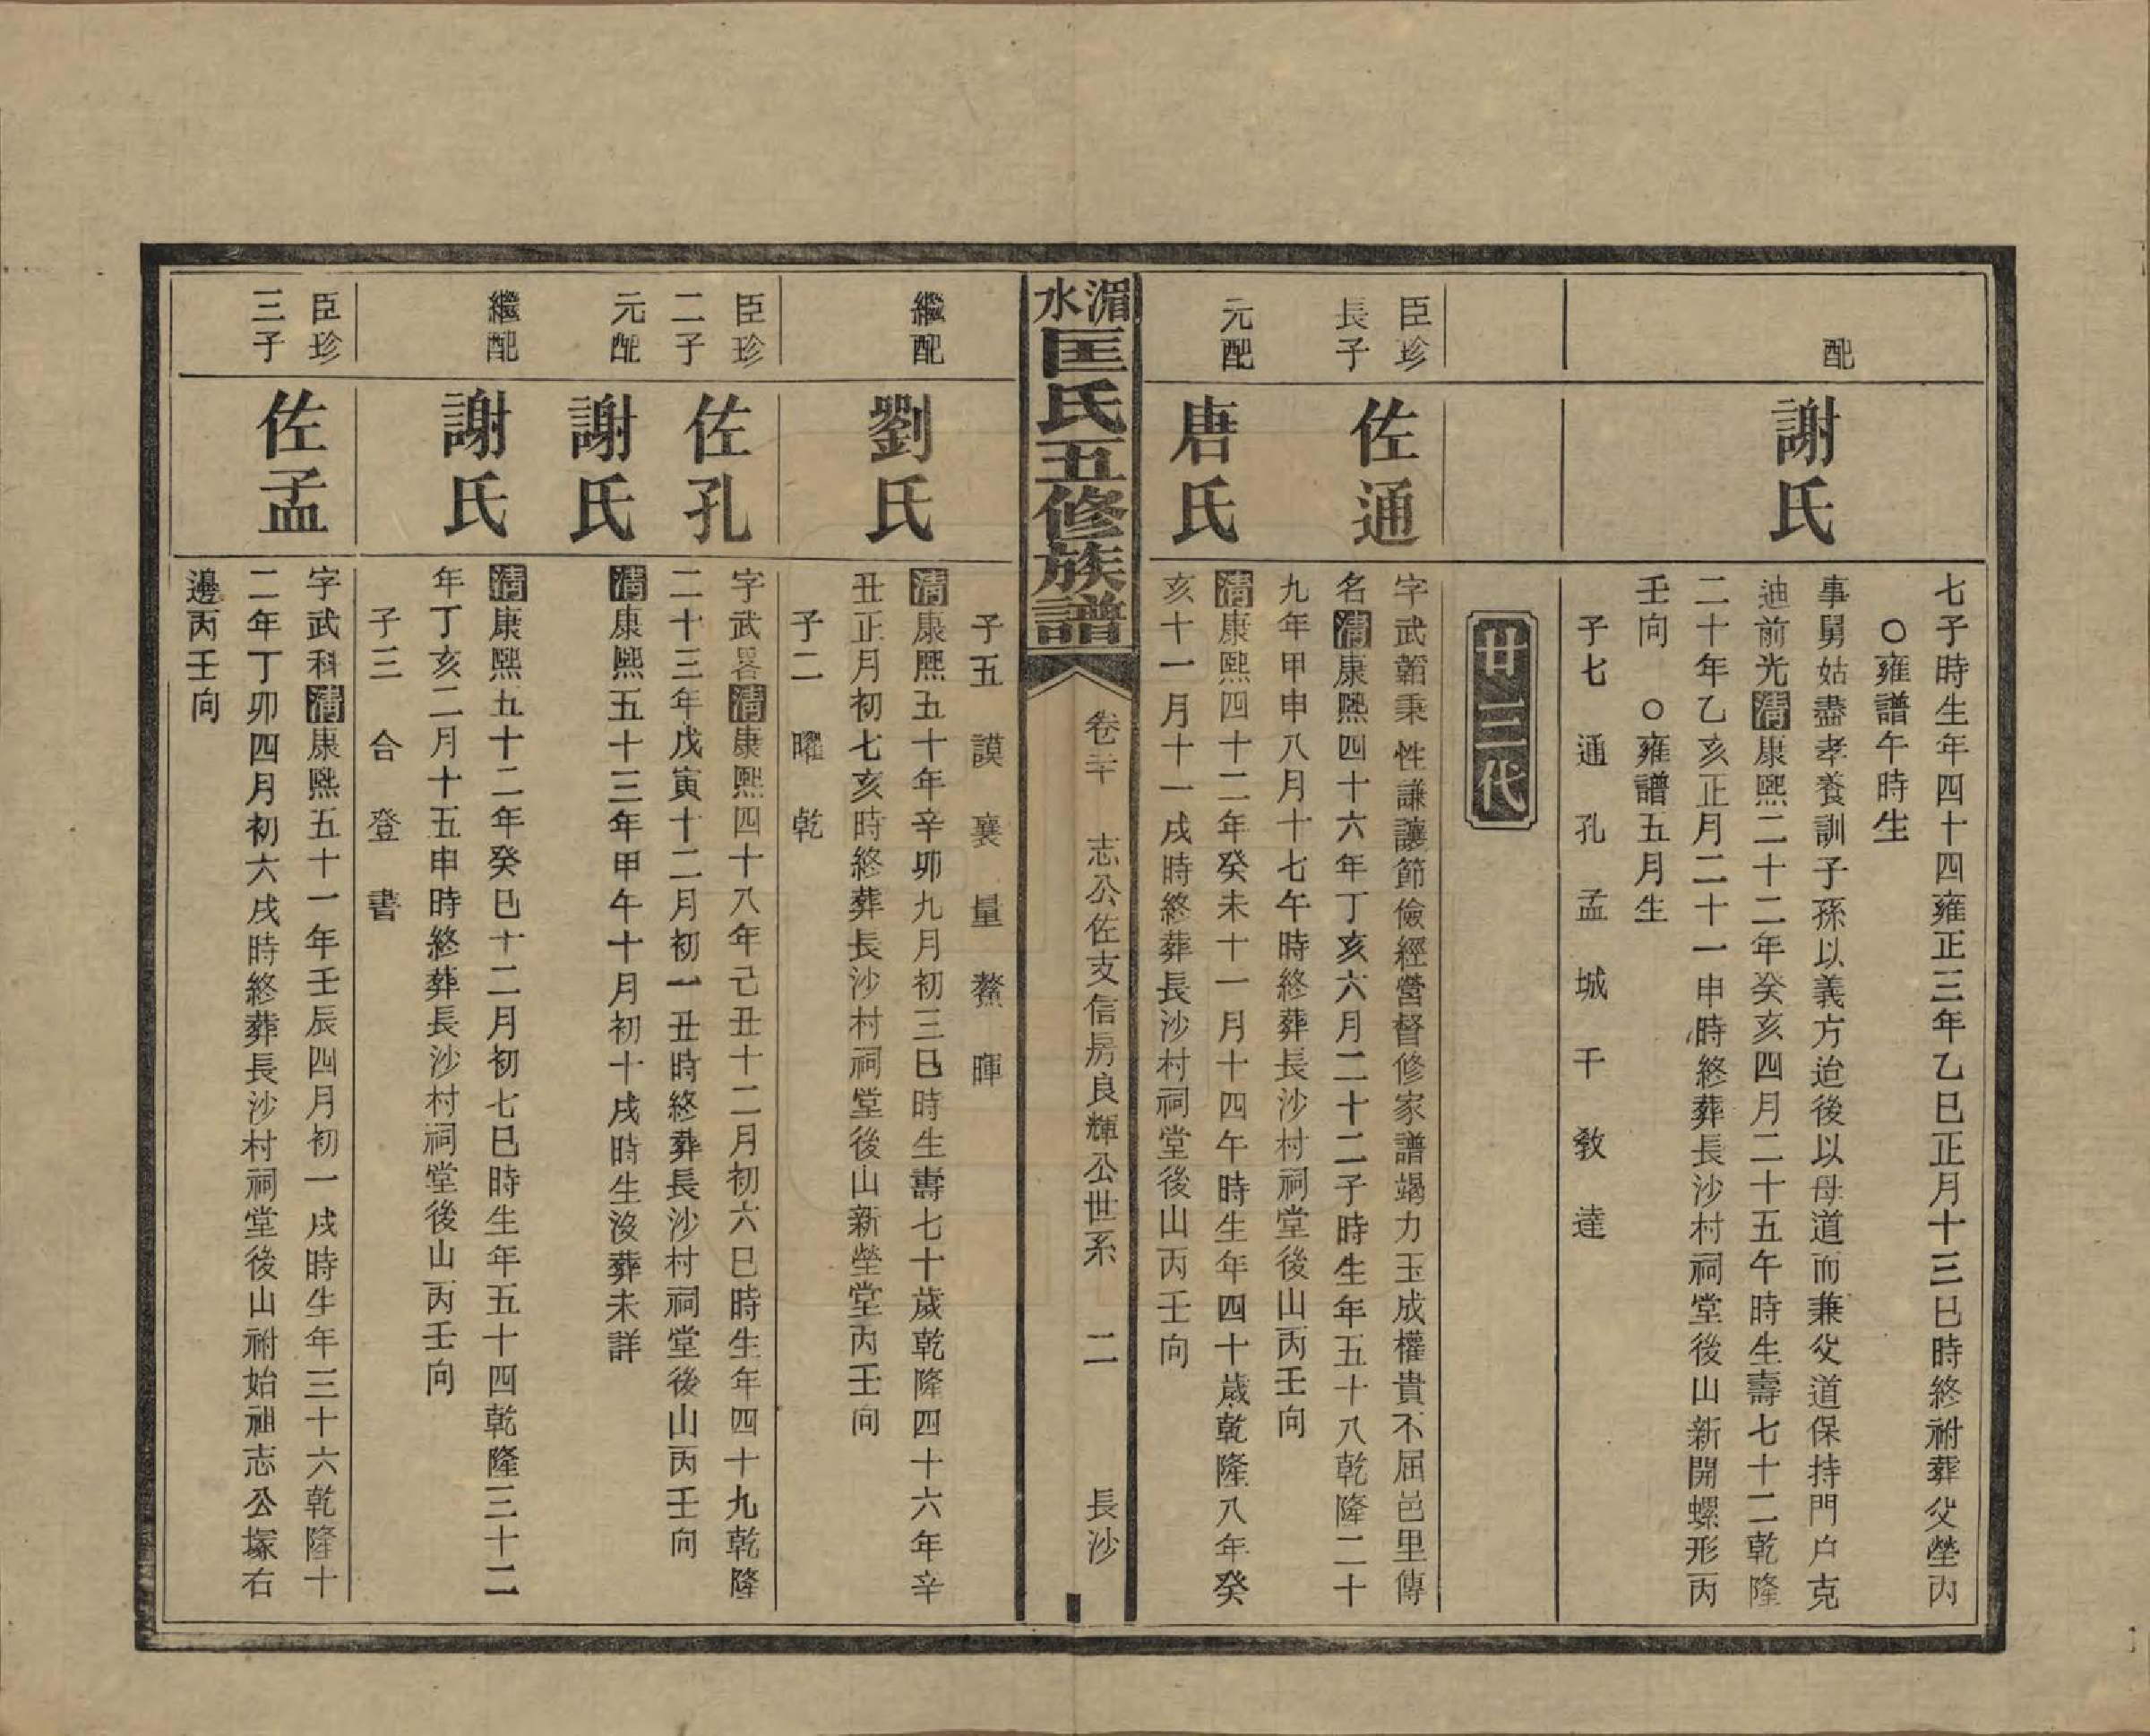 七子時生年四十四雍正三年乙巳正月十三巳時終祔葬父塋丙
○雍譜午時生
配
謝氏
事舅姑盡孝養訓子孫以義方迨後以母道而兼父道保持門戶克
迪前光清康熙二十二年癸亥四月二十五午時生壽七十二乾隆
二十年乙亥正月二十一申時終葬長沙村祠堂後山新開螺形丙
壬向　○雍譜五月生
子七　通　孔　孟　城　干　敎　達
廿三代
臣珍
長子
佐通
字武韜秉性謙讓節儉經營督修家譜竭力玉成權貴不屈邑里傳
名清康熙四十六年丁亥六月二十二子時生年五十八乾隆二十
九年甲申八月十七午時終葬長沙村祠堂後山丙壬向
元配
唐氏
清康熙四十二年癸未十一月十四午時生年四十歲乾隆八年癸
亥十一月十一戌時終葬長沙村祠堂後山丙壬向
湄水匡氏五修族譜
卷三十　志公佐支信房良輝公世系　二　長沙
子五　謨　襄　量　鰲　暉
繼配
劉氏
清康熙五十年辛卯九月初三巳時生壽七十歲乾隆四十六年辛
丑正月初七亥時終葬長沙村祠堂後山新塋堂丙壬向
子二　曜　乾
臣珍
二子
佐孔
字武畧清康熙四十八年己丑十二月初六巳時生年四十九乾隆
二十三年戊寅十二月初一丑時終葬長沙村祠堂後山丙壬向
元配
謝氏
清康熙五十三年甲午十月初十戌時生沒葬未詳
繼配
謝氏
清康熙五十二年癸巳十二月初七巳時生年五十四乾隆三十二
年丁亥二月十五申時終葬長沙村祠堂後山丙壬向
子三　合　登　書
臣珍
三子
佐孟
字武科清康熙五十一年壬辰四月初一戌時生年三十六乾隆十
二年丁卯四月初六戌時終葬長沙村祠堂後山祔始祖志公塚右
邊丙壬向